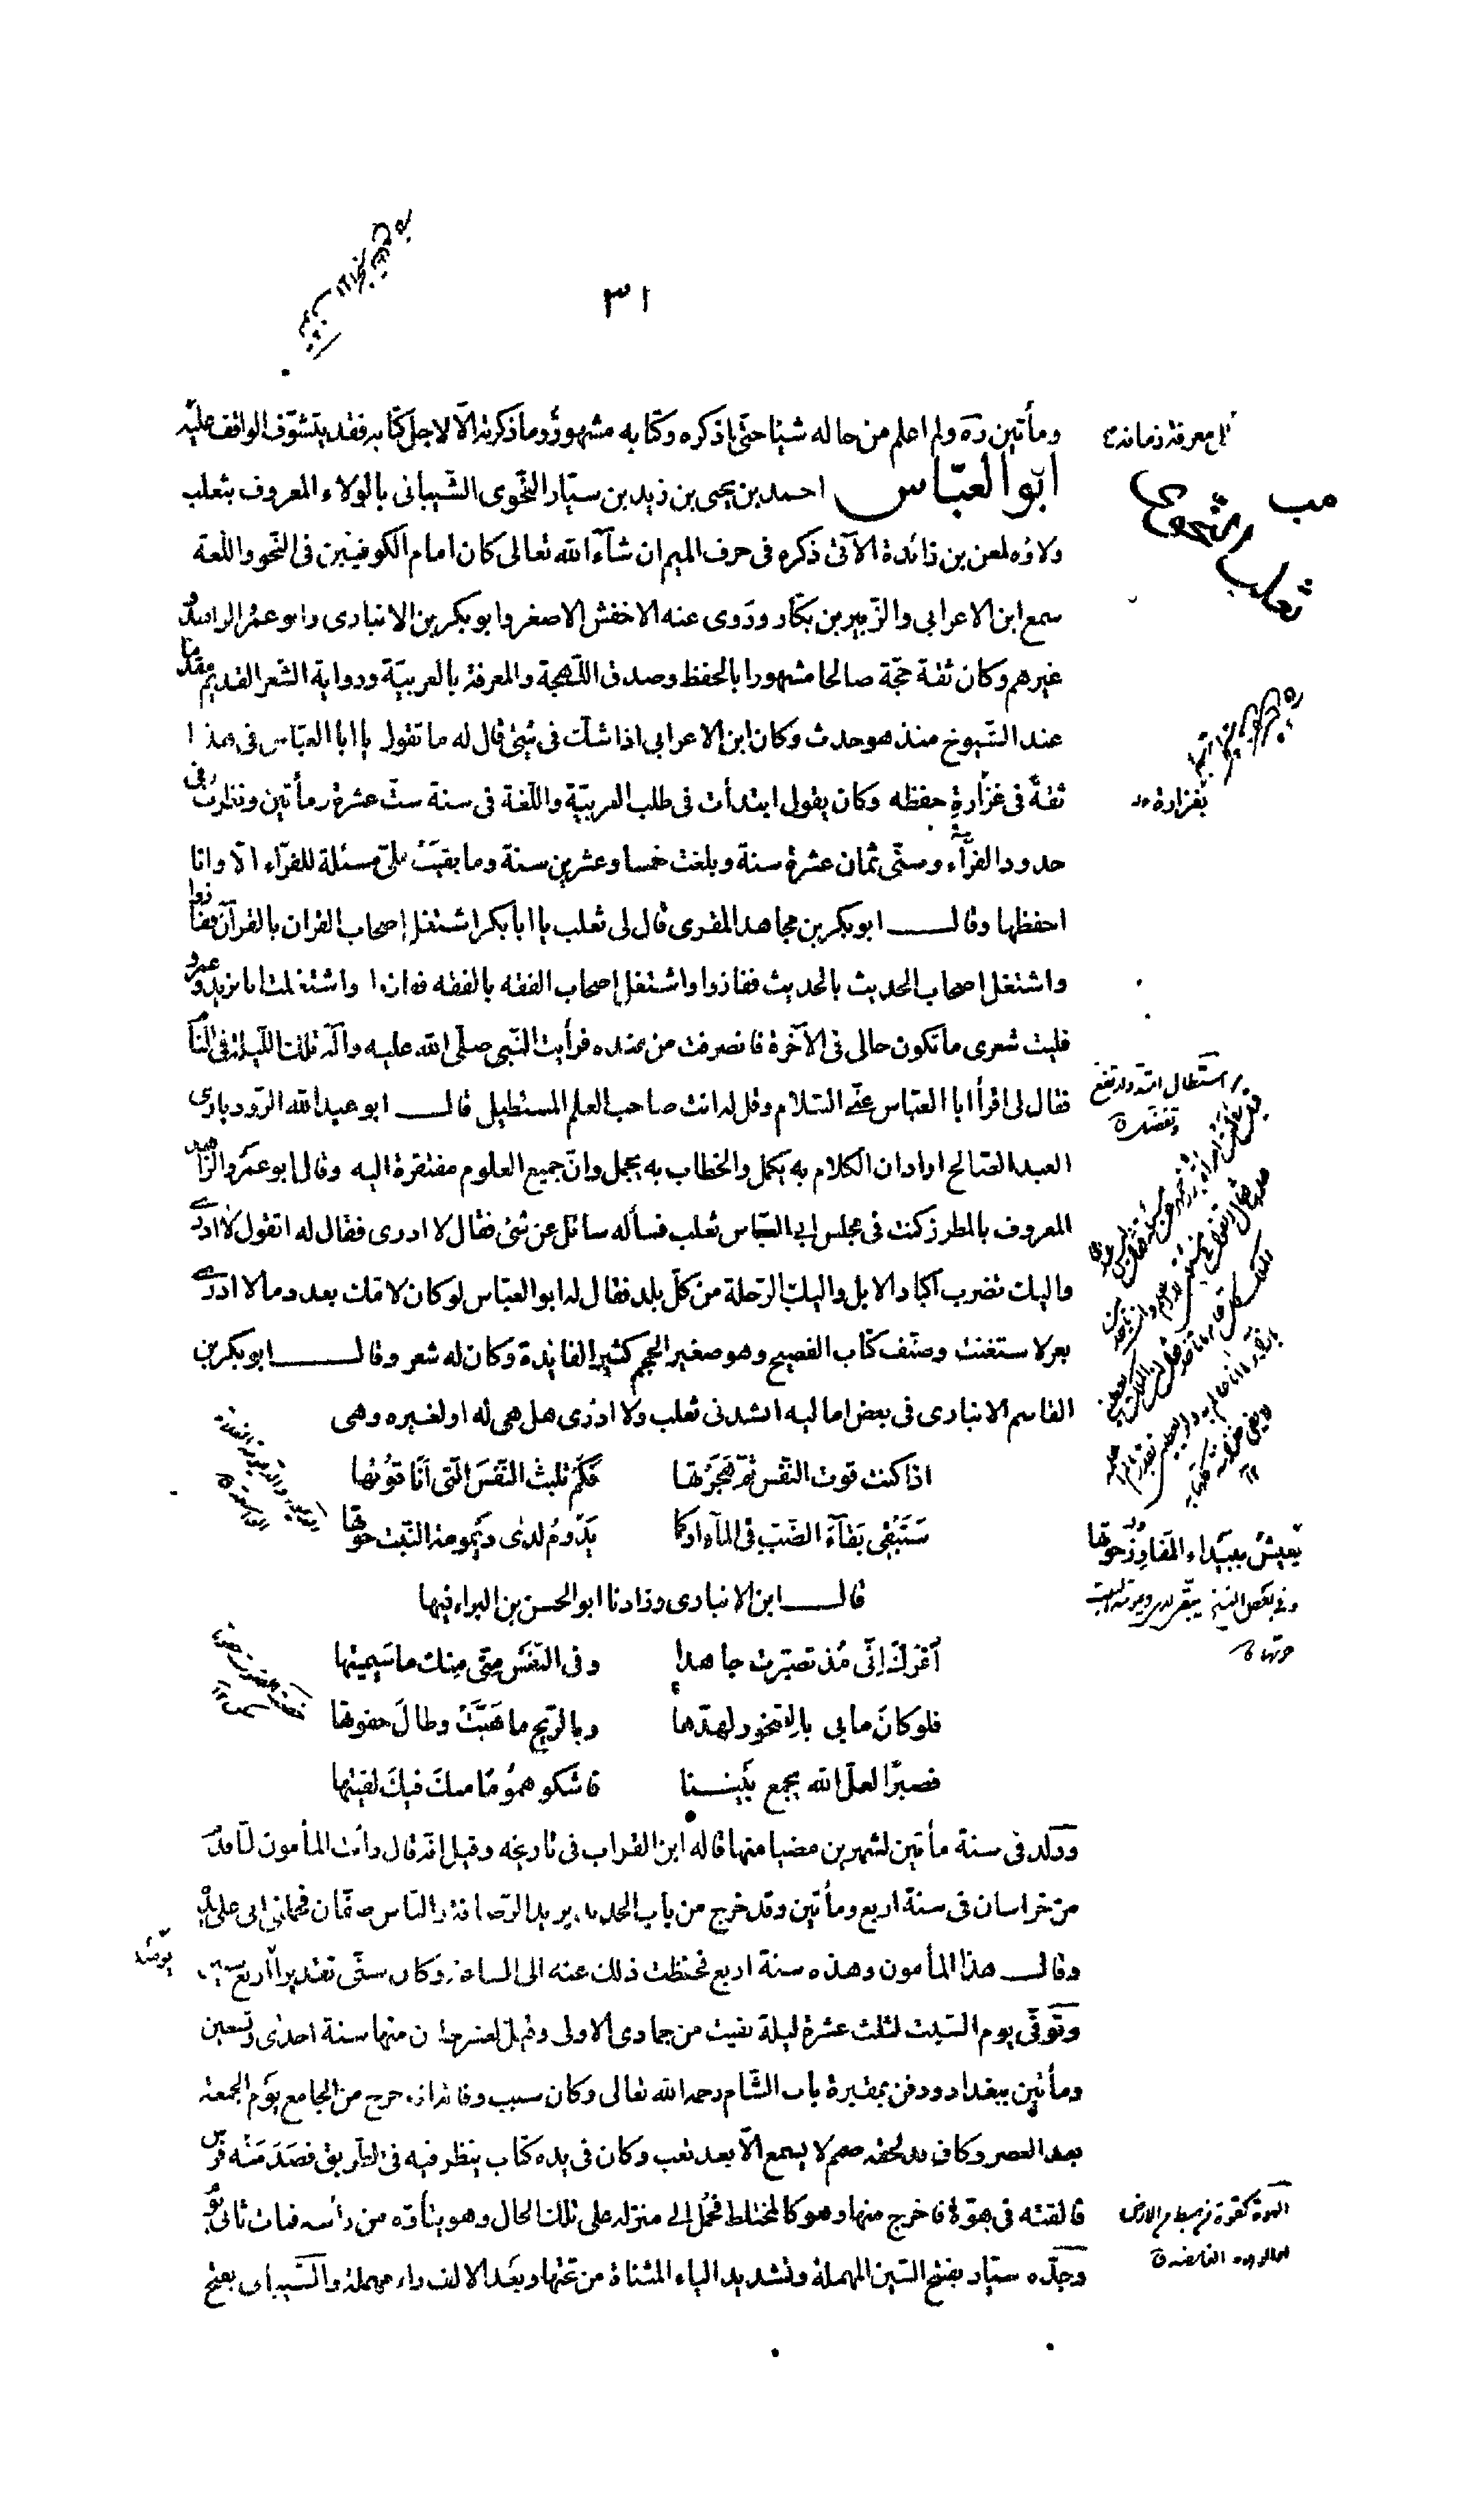 ٣١
ومأتين ره ولم اعلم من حاله شيئا حتى اذكره وكتابه مشهور وما ذكرته الا لاجل كتابه فقد يتشوف الواقف عليه
الى معرفة زمانه
ابو العباس احمد بن يحيى بن زيد بن سيّار النحوى الشيبانى بالولاء المعروف بثعلب
ثعلب النحوى
ولاؤه لمعن بن زائدة الآتى ذكره فى حرف الميم ان شآء الله تعالى كان امام الكوفيين فى النحو واللغة
سمع ابن الاعرابي والزبير بن بكّار وروى عنه الاخفش الاصغر وابو بكر بن الانبارى وابو عمر الزاهد و
غيرهم وكان ثقة حجّة صالحا مشهورا بالحفظ وصدق اللهجة والمعرفة بالعربيّة ورواية الشعر القديم مقدما
عند الشيوخ منذ هو حدث وكان ابن الاعرابي اذا شك فى شئ قال له ما تقول يا ابا العباس فى هذا
ثقة فى غزارة حفظه وكان يقول ابتدأت فى طلب العربيّة واللغة فى سنة ستّ عشرة ومأتين ونظرت فى
بغزارة
حدود الفرّاء وسنّى ثمان عشرة سنة وبلغت خمسا وعشرين سنة وما بقيت علىّ مسئلة للفرّاء الّا وانا
احفظها وقال ابو بكر بن مجاهد المقرى قال لى ثعلب يا ابا بكر اشتغل اصحاب القران بالقرآن ففازوا
واشتغل اصحاب الحديث بالحديث ففازوا واشتغل اصحاب الفقه بالفقه ففازوا واشتغلت انا بزيد وعمرو
فليت شعرى ما تكون حالى فى الآخرة فانصرفت من عنده فرأيت النبى صلّى الله عليه وآله تلك الليلة فى المنا
فقال لى اقرأ ابا العباس عنّى السلام وقل له انت صاحب العلم المستطيل قال ابو عبد الله الرودبارى
العبد الصالح اراد ان الكلام به يكمل والخطاب به يجمل وانّ جميع العلوم مفتقرة اليه وقال ابو عمرو الزاهد
المعروف بالمطرز كنت فى مجلس ابى العباس ثعلب فسأله سائل عن شئ فقال لا ادرى فقال له اتقول لا ادرى
واليك تضرب اكباد الابل واليك الرحلة من كلّ بلد فقال له ابو العباس لو كان لامّك بعدد ما لا ادرى
بعر لاستغنت وصنّف كتاب الفصيح وهو صغير الحجم كثير الفايدة وكان له شعر وقال ابو بكر بن
القاسم الانبارى فى بعض اماليه انشدنى ثعلب ولا ادرى هل هى له او لغيره وهى
اذا كنت قوت النفس ثمّ هجرتها فكم تلبث النفس التى انا قوتها
ستبقى بقآء الضبّ فى المآء او كما يدوم لدى ديمومة النبت حوتها
يعيش ببيداء المفاوز حوتها
قال ابن الانبارى وزادنا ابو الحسن بن البراء فيها
أغرّك انّى مذ تصبّرت جاهدا وفى النفس منّى منك ما سيميتها
فلو كان ما بى بالصخور لهدّها وبالريح ما هبّت وطال حفوتها
فصبرا لعلّ الله يجمع بيننا فاشكو هموما منك فيك لقيتها
وولد فى سنة مأتين لشهرين مضيا منها قاله ابن القراب فى تاريخه وقيل انّه قال رأيت المأمون لمّا قدم
من خراسان فى سنة اربع ومأتين وقد خرج من باب الحديد يريد الرصافة والناس صفّان فحملنى ابى على يده
وقال هذا المأمون وهذه سنة اربع فحفظت ذلك عنه الى الساعة وكان سنّى تقديرا اربع سنين
وتوفّى يوم السبت لثلث عشرة ليلة بقيت من جمادى الاولى وقيل لعشر خلون منها سنة احدى وتسعين
ومأتين ببغداد ودفن بمقبرة باب الشام رحمه الله تعالى وكان سبب وفاته انه خرج من الجامع يوم الجمعة
بعد العصر وكان قد لحقه صمم لا يسمع الّا بعد تعب وكان فى يده كتاب ينظر فيه فى الطريق فصدمته فرس
فالقته فى هوّة فاخرج منها وهو كالمختلط فحمل الى منزله على تلك الحال وهو يتأوّه من رأسه فمات ثانى يوم
وجدّه سيّار بفتح السين المهملة وتشديد الياء المثناة من تحتها وبعد الالف راء مهملة والشيبانى بفتح